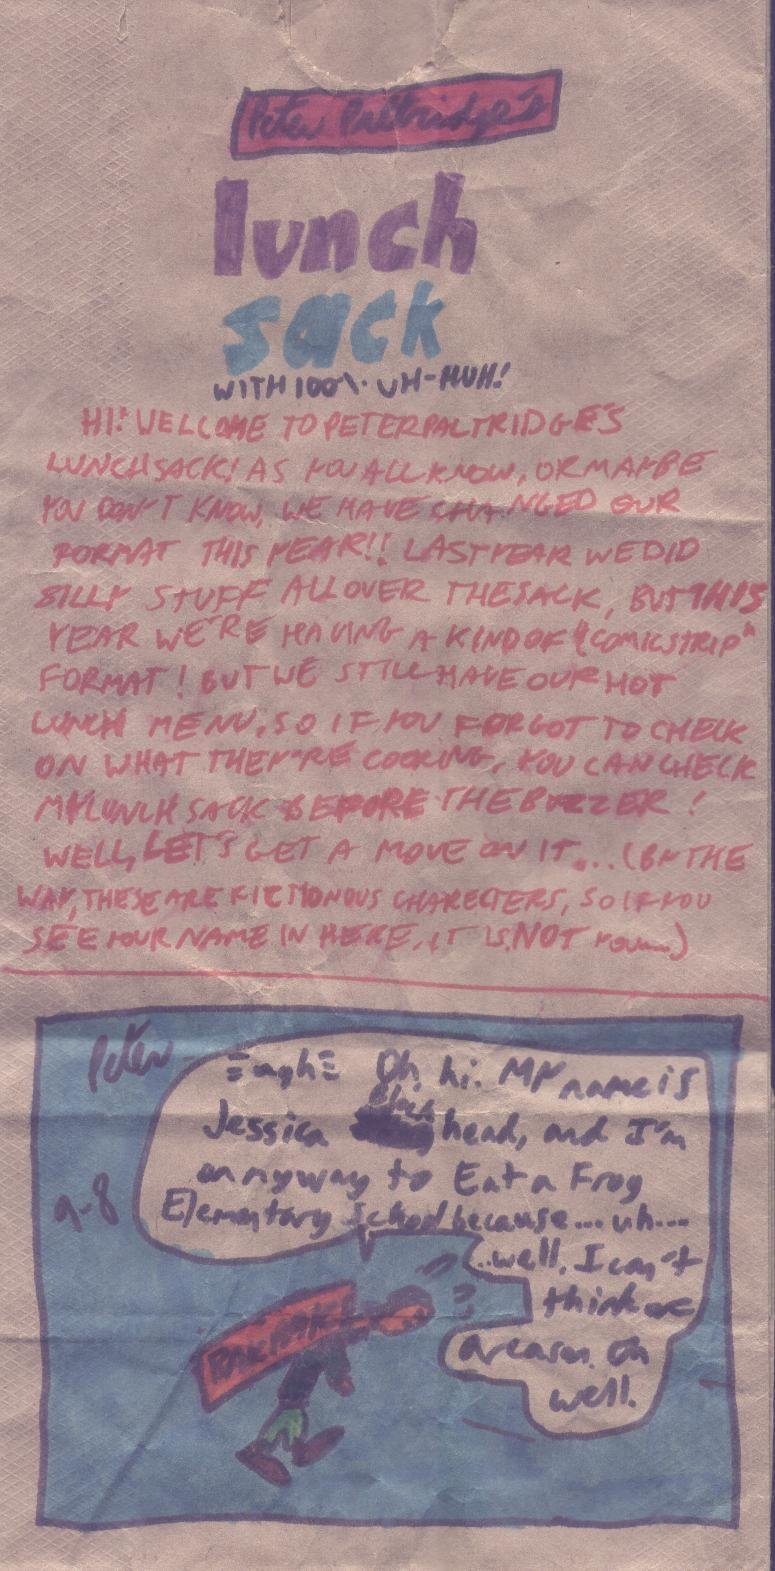 Peter Paltridge's
lunch
sack
WITH 100%. UH-HUH!
HI! WELCOME TO PETER PALTRIDGE'S
LUNCH SACK! AS YOU ALL KNOW, OR MAYBE
YOU DON'T KNOW, WE HAVE CHANGED OUR
FORMAT THIS YEAR!! LAST YEAR WE DID
SILLY STUFF ALL OVER THE SACK, BUT THIS
YEAR WE'RE HAVING A KIND OF "COMIC STRIP"
FORMAT! BUT WE STILL HAVE OUR HOT
LUNCH MENU, SO IF YOU FORGOT TO CHECK
ON WHAT THEY'RE COOKING, YOU CAN CHECK
MY LUNCH SACK BEFORE THE BUZZER!
WELL, LET'S GET A MOVE ON IT... (BY THE
WAY, THESE ARE FICTIONOUS CHARECTERS, SO IF YOU
SEE YOUR NAME IN HERE, IT IS NOT YOU...)
Peter
9-8
ΞughΞ Oh, hi. My name is
Jessica Blockhead, and I'm
on my way to Eat a Frog
Elementary School because.... uh....
..well, I can't
think of
a reason. Oh
well.